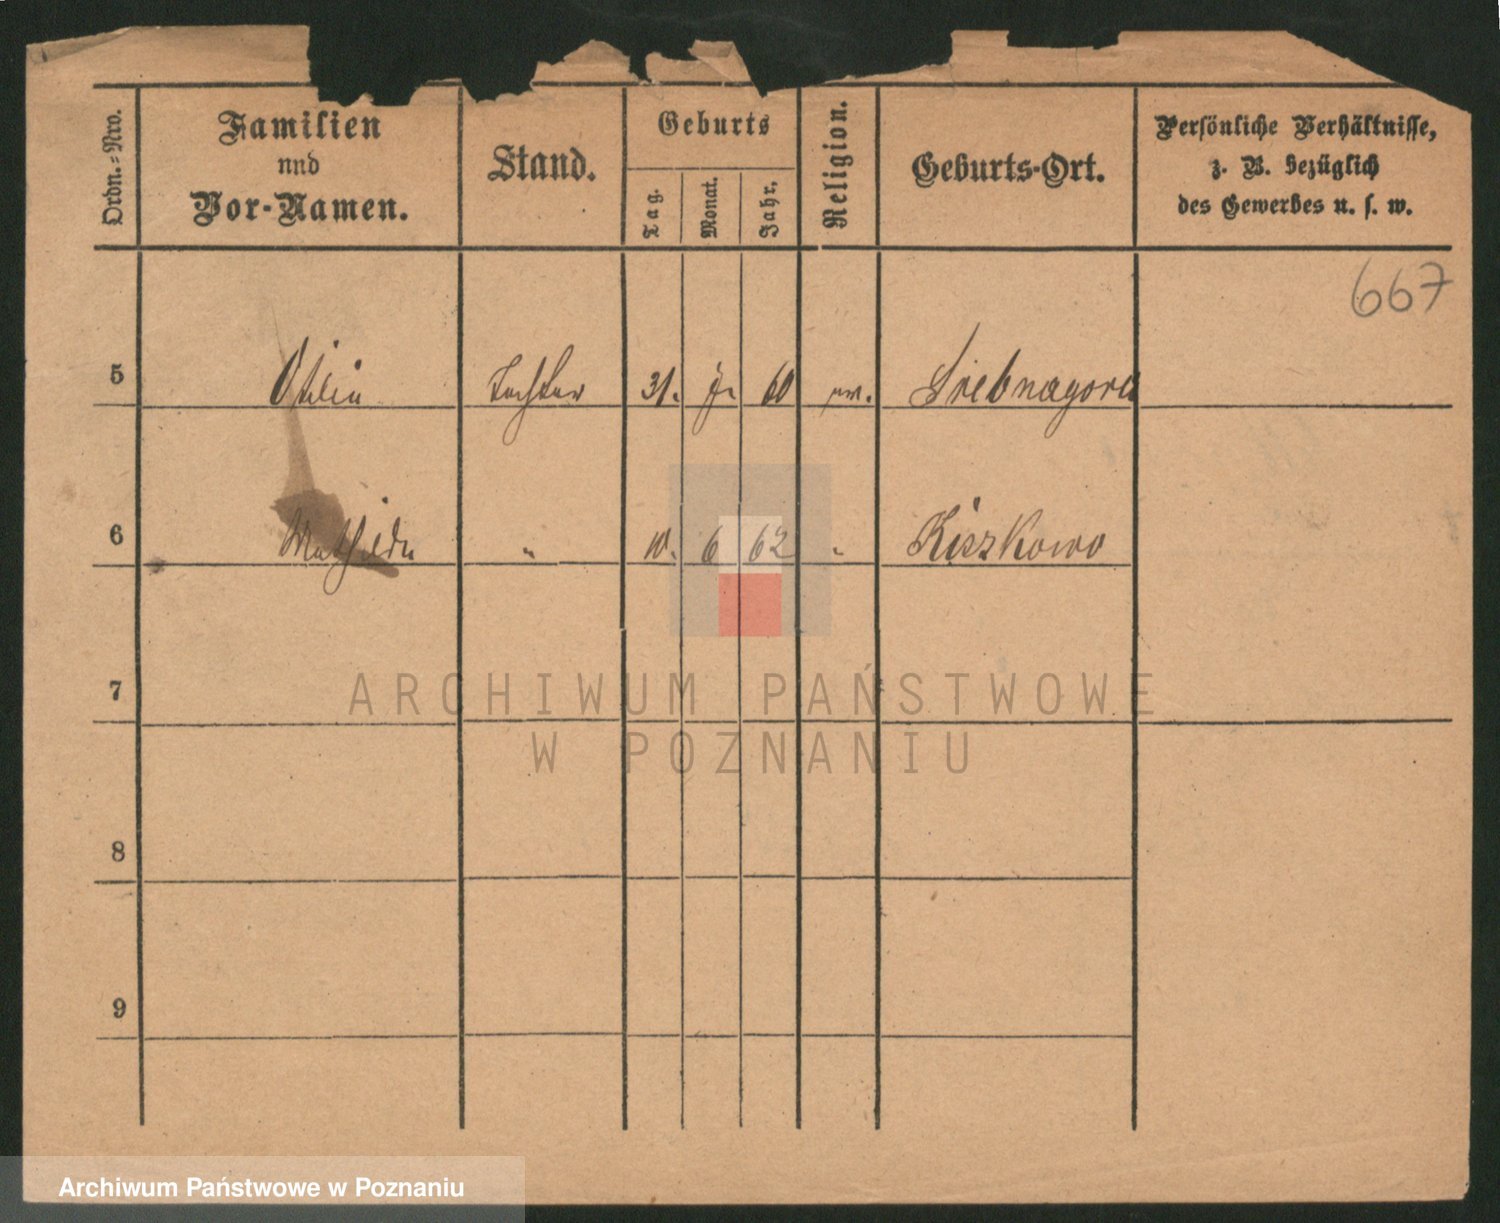 Ordn.-Nro.
Familien
und
Vor-Namen.
Stand.
Geburts
Tag.
Monat.
Jahr.
Religion.
Geburts-Ort.
Persönliche Verhältnisse,
z. B. bezüglich
des Gewerbes u. s. w.
667
5 Otilia Tochter 31. 60 Srebnagora
6 Mathilda " 10. 6 62 " Kiszkowo
7
8
9
ARCHIWUM PAŃSTWOWE
W POZNANIU
Archiwum Państwowe w Poznaniu